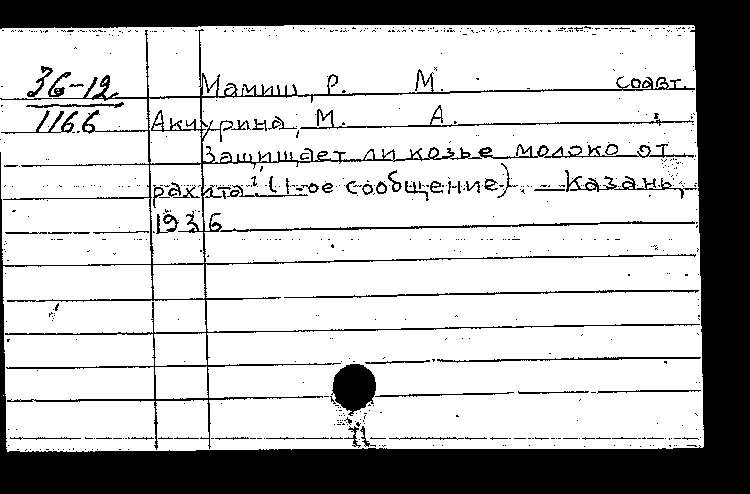 36-12
1166
Мамиш, Р. М. соавт.
Акчурина, М. А.
Защищает ли козье молоко от
рахита? (1-ое сообщение). - Казань,
1936